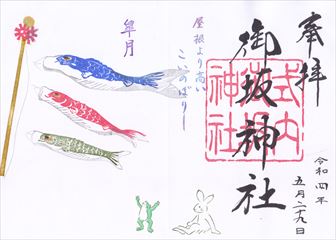 奉拝
御坂神社
式内
御坂
神社
令和四年
五月二十九日
皐月
屋根より高い
こいのぼり